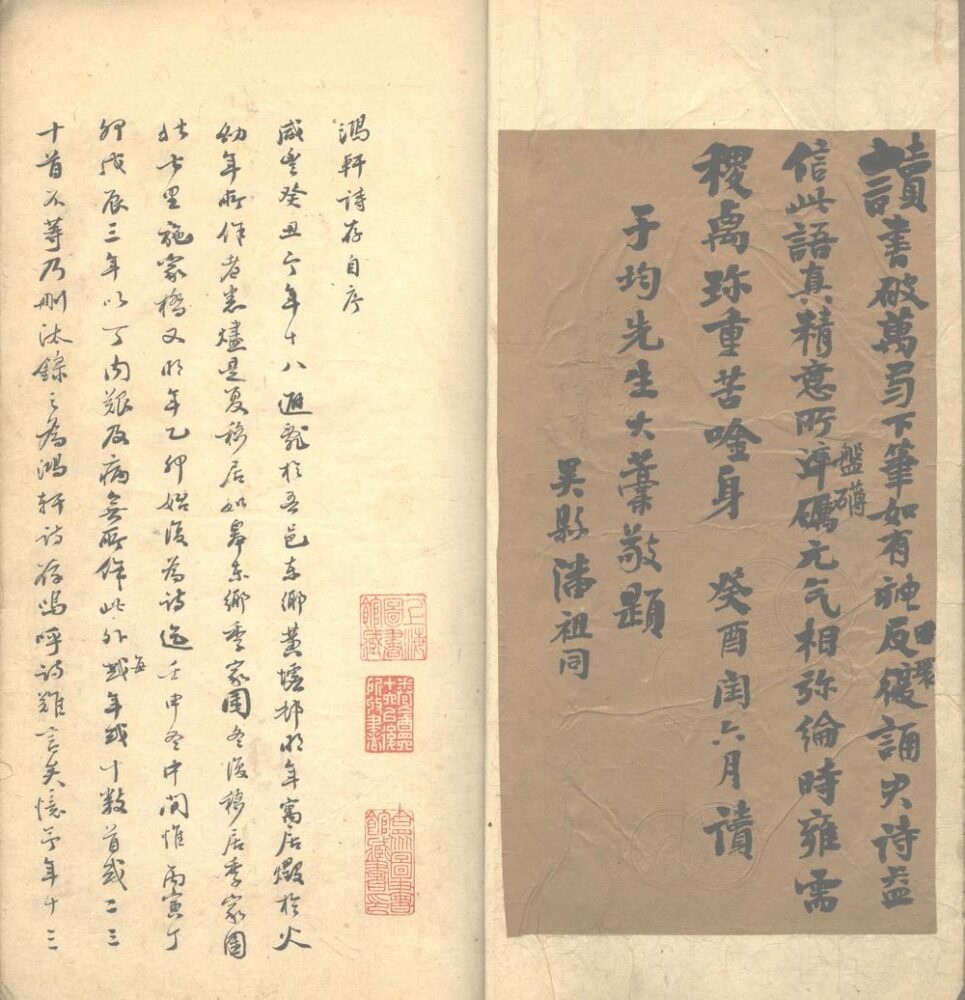 讀書破萬弓下筆如有神反復誦大诗益
回環
信此語真精意所渟礴元气相弥綸時雍需
盤礴
稷禼珎重苦唫身 癸酉闰六月讀
于均先生大藁敬題
吴縣潘祖同
鴻軒詩存自序
咸豐癸丑予年十八避亂於吾邑东鄉黃墟邨明年寓居燬於火
幼年所作者悉燼是夏移居如皋东鄉季家園冬復移居季家園
北七里施家橋又明年乙卯始復為詩迄壬申冬中間惟丙寅丁
卯戊辰三年以丁内艱及病無所作此外每年或十數首或二三
十首不等乃刪汰錄之為鴻軒詩存嗚呼詩難言矣憶予年十三
上海圖書館藏